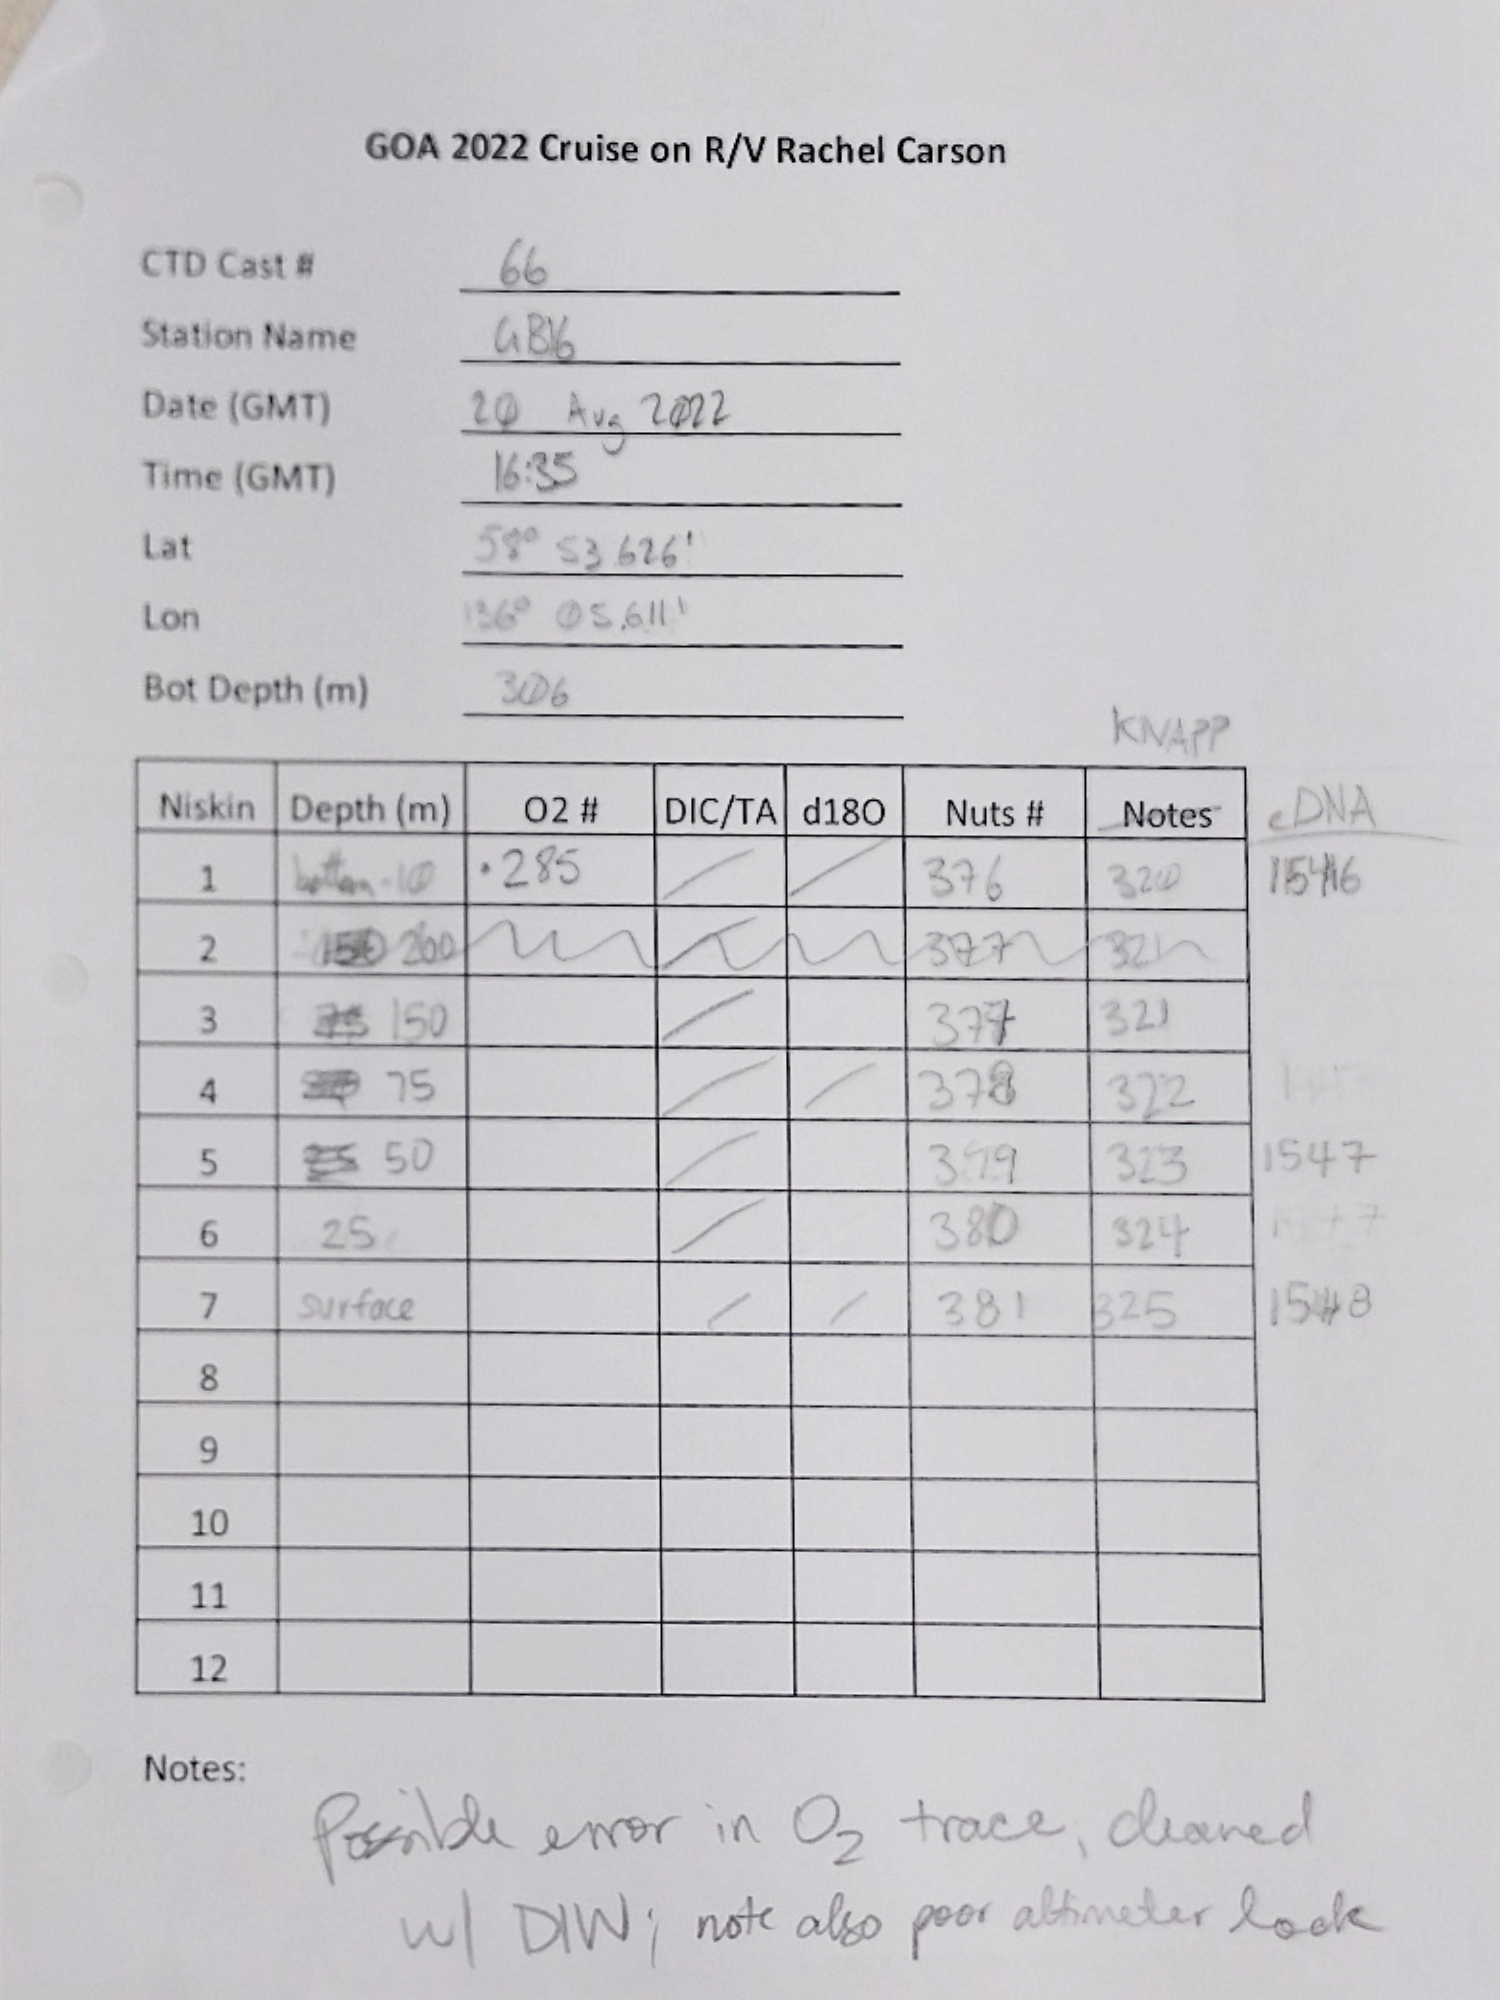 GOA 2022 Cruise on R/V Rachel Carson
CTD Cast # 66
Station Name GB16
Date (GMT) 20 Aug 2022
Time (GMT) 16:35
Lat 58° 53.626'
Lon 136° 05.611'
Bot Depth (m) 306
KNAPP
Niskin Depth (m) O2 # DIC/TA d18O Nuts # Notes eDNA
1 bottom-10 • 285 / / 376 320 11546
2 150 200 / 377 321
3 75 150 / 377 321
4 75 / / 378 322
5 25 50 / 379 323 1547
6 25 / 380 324
7 surface / / 381 325 1548
8
9
10
11
12
Notes:
Possible error in O2 trace, cleaned
w/ DIW; note also poor altimeter lock